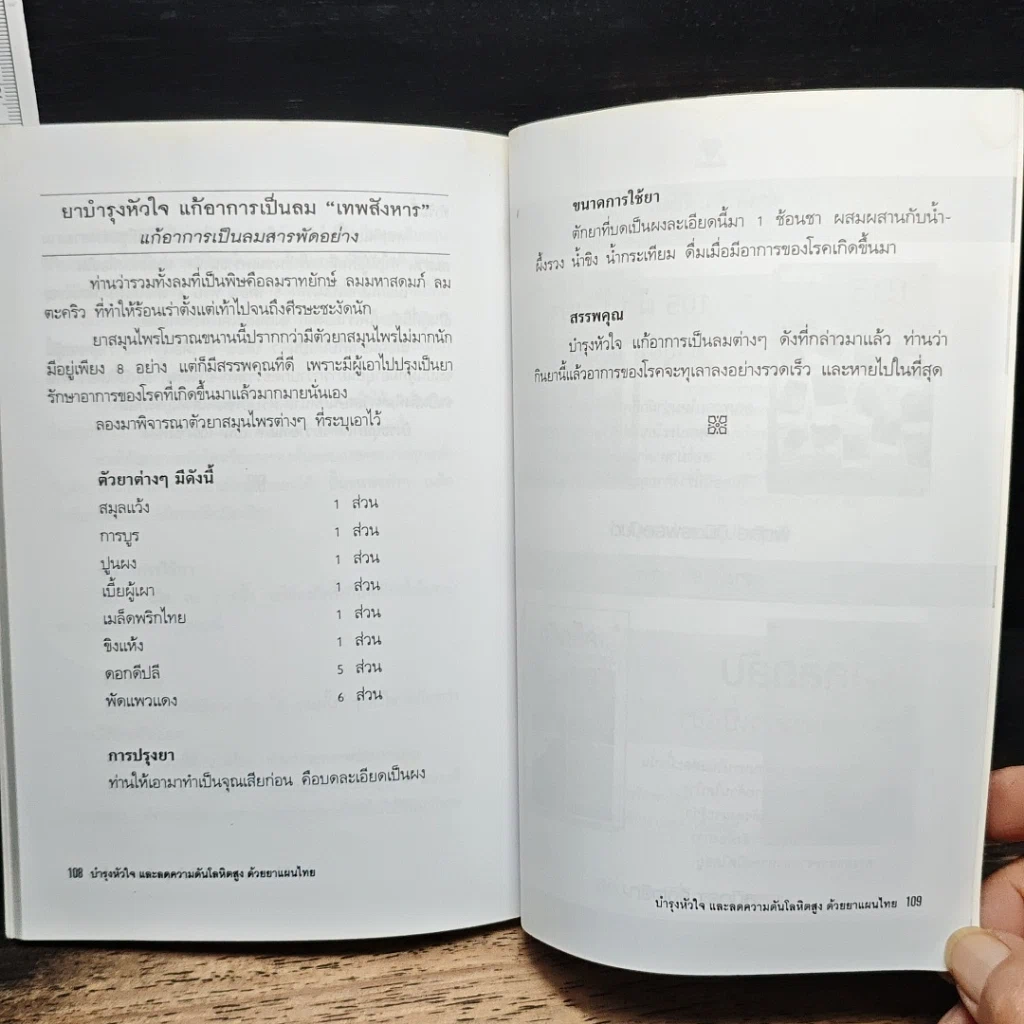 ยาบำรุงหัวใจ แก้อาการเป็นลม “เทพสังหาร”
แก้อาการเป็นลมสารพัดอย่าง
ท่านว่ารวมทั้งลมที่เป็นพิษคือลมราทยักษ์ ลมมหาสดมภ์ ลม
ตะคริว ที่ทำให้ร้อนเร่าตั้งแต่เท้าไปจนถึงศีรษะชะงัดนัก
ยาสมุนไพรโบราณขนานนี้ปรากกว่ามีตัวยาสมุนไพรไม่มากนัก
มีอยู่เพียง 8 อย่าง แต่ก็มีสรรพคุณที่ดี เพราะมีผู้เอาไปปรุงเป็นยา
รักษาอาการของโรคที่เกิดขึ้นมาแล้วมากมายนั่นเอง
ลองมาพิจารณาตัวยาสมุนไพรต่างๆ ที่ระบุเอาไว้
ตัวยาต่างๆ มีดังนี้
สมุลแว้ง 1 ส่วน
การบูร 1 ส่วน
ปูนผง 1 ส่วน
เบี้ยผู้เผา 1 ส่วน
เมล็ดพริกไทย 1 ส่วน
ขิงแห้ง 1 ส่วน
ดอกดีปลี 5 ส่วน
พัดแพวแดง 6 ส่วน
การปรุงยา
ท่านให้เอามาทำเป็นจุณเสียก่อน คือบดละเอียดเป็นผง
108 บำรุงหัวใจ และลดความดันโลหิตสูง ด้วยยาแผนไทย
ขนาดการใช้ยา
ตักยาที่บดเป็นผงละเอียดนี้มา 1 ช้อนชา ผสมผสานกับน้ำ-
ผึ้งรวง น้ำขิง น้ำกระเทียม ดื่มเมื่อมีอาการของโรคเกิดขึ้นมา
สรรพคุณ
บำรุงหัวใจ แก้อาการเป็นลมต่างๆ ดังที่กล่าวมาแล้ว ท่านว่า
กินยานี้แล้วอาการของโรคจะทุเลาลงอย่างรวดเร็ว และหายไปในที่สุด
บำรุงหัวใจ และลดความดันโลหิตสูง ด้วยยาแผนไทย 109